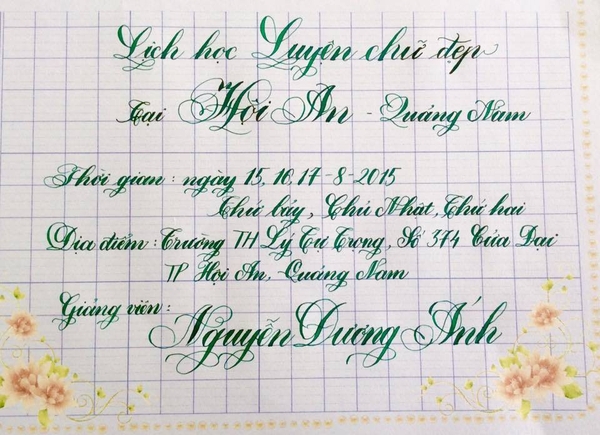 Lịch học Luyện chữ đẹp
tại Hội An - Quảng Nam
Thời gian: ngày 15, 16, 17-8-2015
Thứ bảy, Chủ Nhật, Thứ hai
Địa điểm: Trường TH Lý Tự Trọng, Số 374 Cửa Đại
TP Hội An, Quảng Nam
Giảng viên:
Nguyễn Dương Ánh